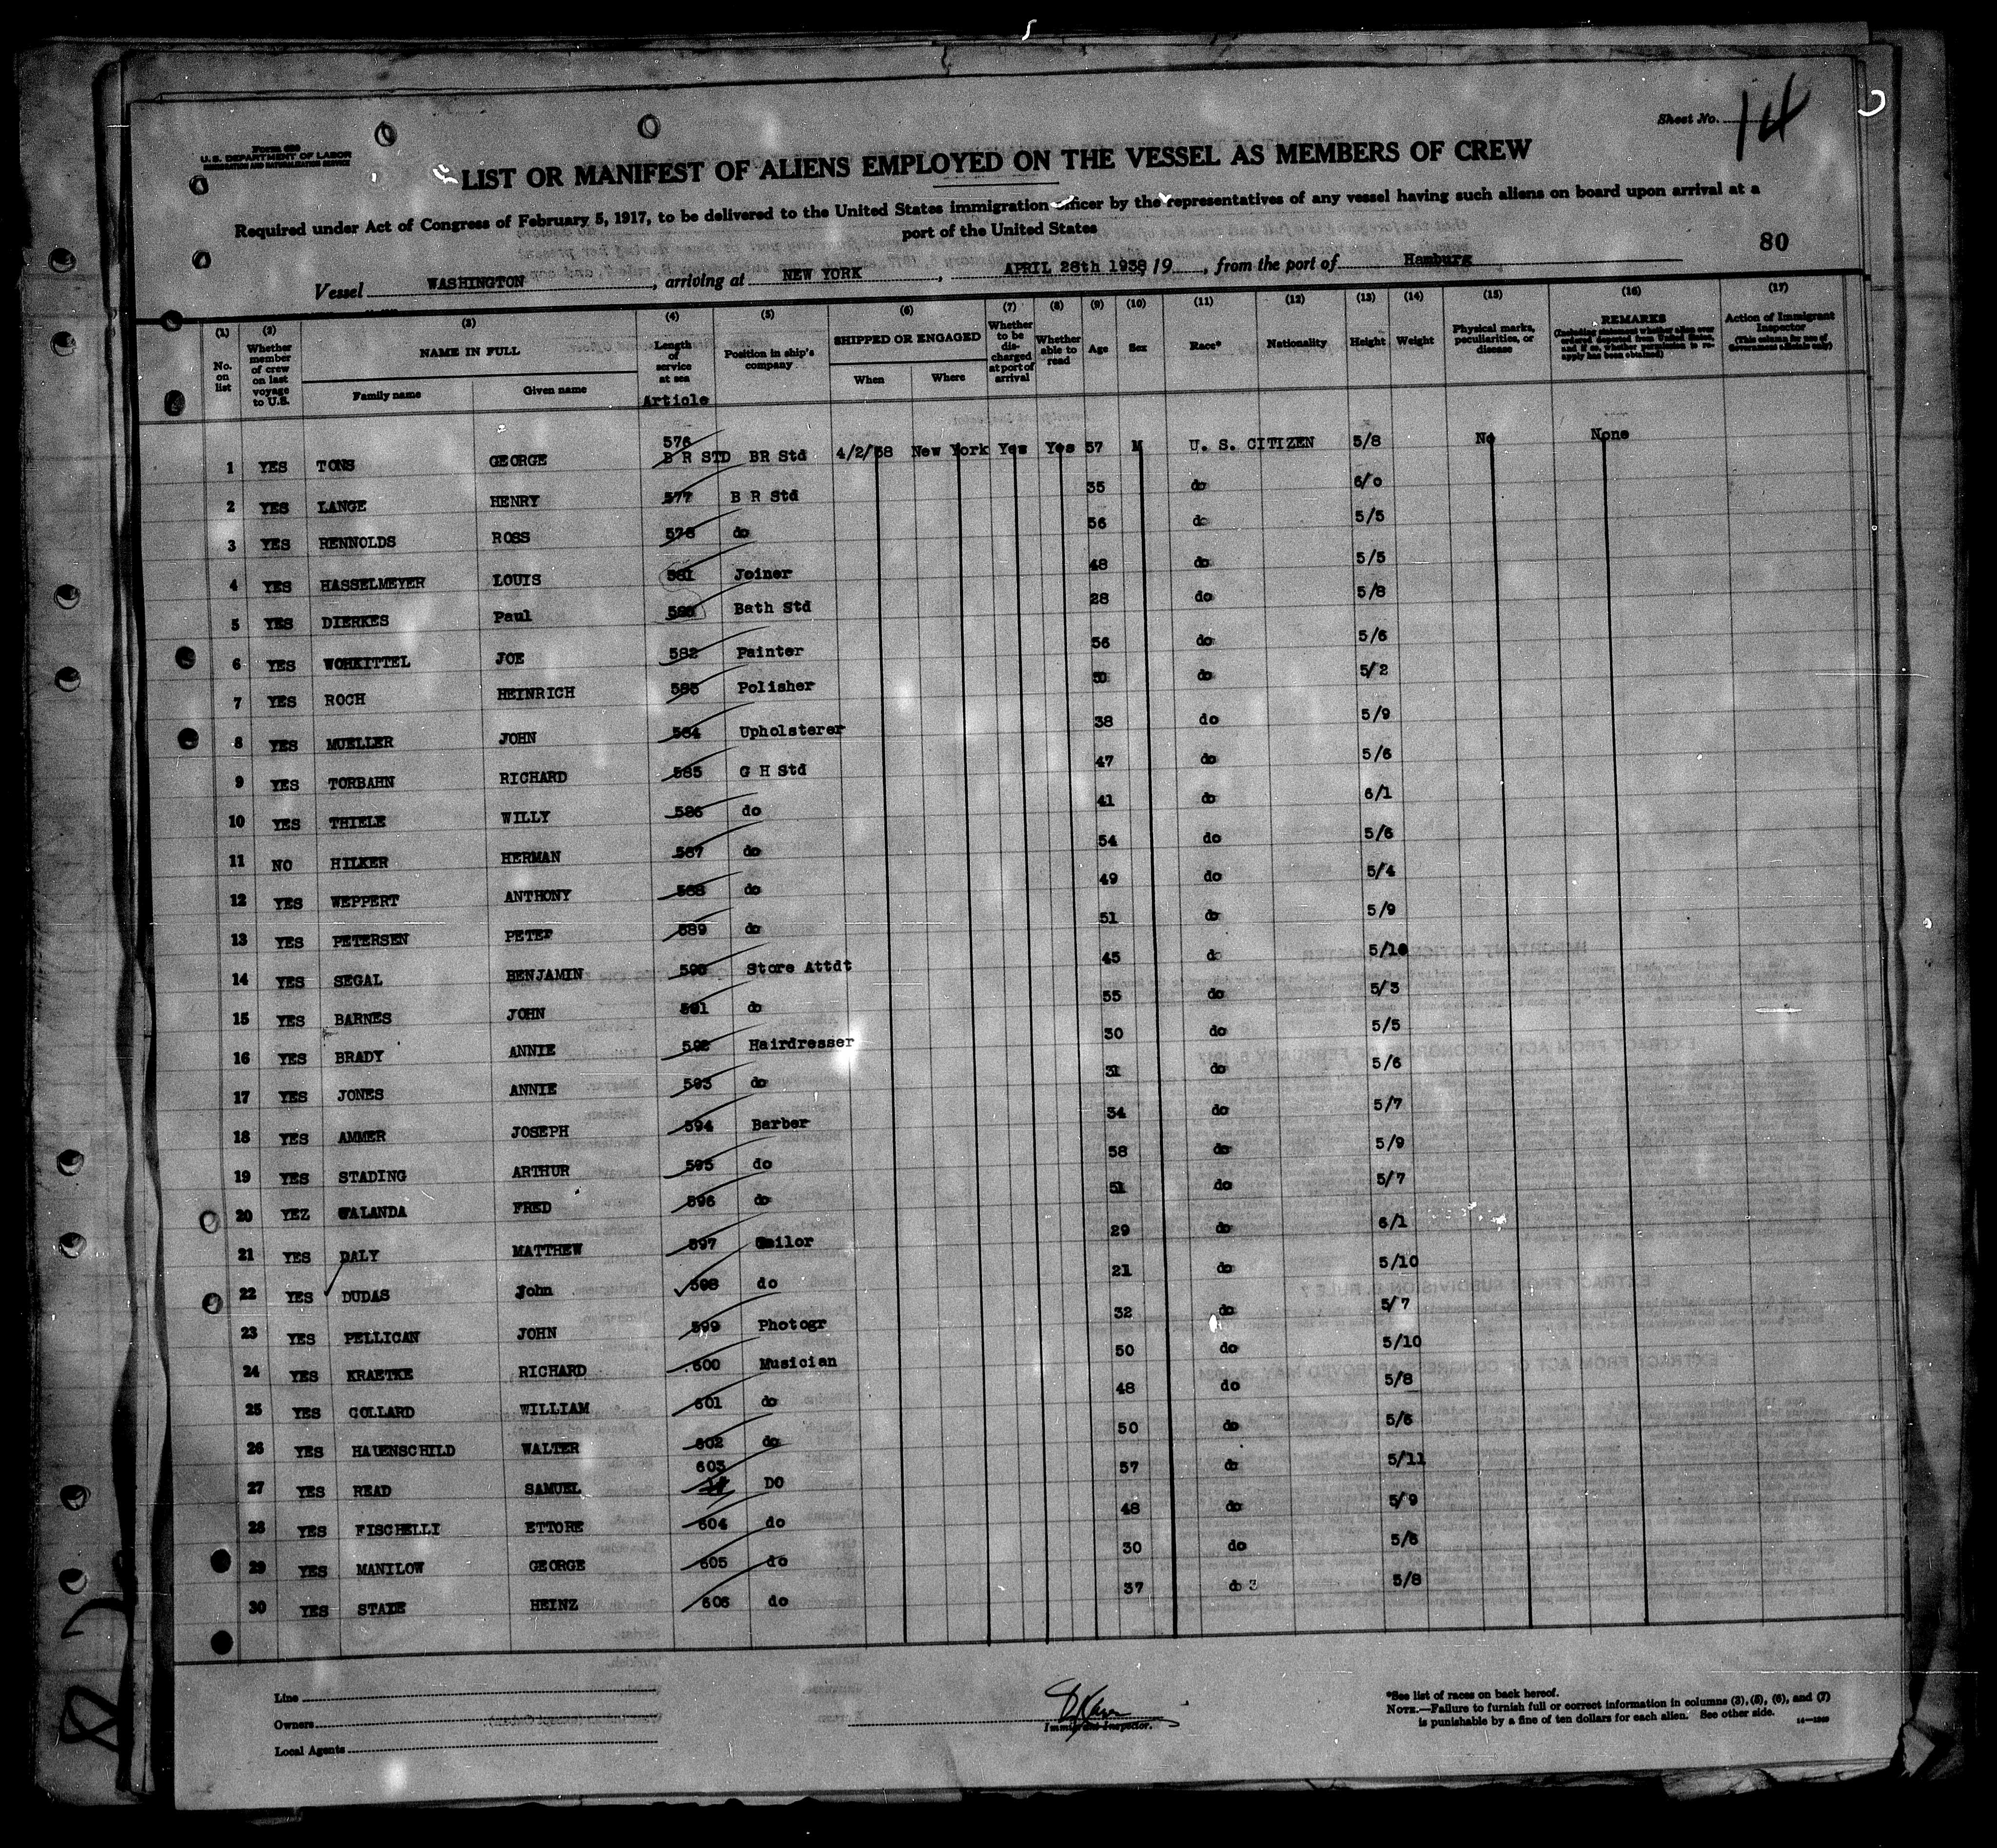 Sheet No. 14
Form 680
U. S. DEPARTMENT OF LABOR
IMMIGRATION AND NATURALIZATION SERVICE
LIST OR MANIFEST OF ALIENS EMPLOYED ON THE VESSEL AS MEMBERS OF CREW
Required under Act of Congress of February 5, 1917, to be delivered to the United States immigration officer by the representatives of any vessel having such aliens on board upon arrival at a
port of the United States
80
Vessel WASHINGTON, arriving at NEW YORK, APRIL 28th 1938, 19, from the port of Hamburg
(1) (2) (3) (4) (5) (6) (7) (8) (9) (10) (11) (12) (13) (14) (15) (16) (17)
No. on list
Whether member of crew on last voyage to U.S.
NAME IN FULL
Family name
Given name
Length of service at sea
Article
Position in ship's company
SHIPPED OR ENGAGED
When
Where
Whether to be discharged at port of arrival
Whether able to read
Age
Sex
Race*
Nationality
Height
Weight
Physical marks, peculiarities, or disease
REMARKS
(Including statement whether alien ever ordered deported from United States, and if so, whether permission to reapply has been obtained)
Action of Immigrant Inspector
(This column for use of Government officials only)
1 YES TONS GEORGE 576 B R STD BR Std 4/2/38 New York Yes Yes 57 M U. S. CITIZEN 5/8 No None
2 YES LANGE HENRY 577 B R Std 35 do 6/0
3 YES RENNOLDS ROSS 578 do 56 do 5/5
4 YES HASSELMEYER LOUIS 581 Joiner 48 do 5/5
5 YES DIERKES Paul 580 Bath Std 28 do 5/8
6 YES WOHKITTEL JOE 582 Painter 56 do 5/6
7 YES ROCH HEINRICH 583 Polisher 50 do 5/2
8 YES MUELLER JOHN 584 Upholsterer 38 do 5/9
9 YES TORBAHN RICHARD 585 G H Std 47 do 5/6
10 YES THIELE WILLY 586 do 41 do 6/1
11 NO HILKER HERMAN 587 do 54 do 5/6
12 YES WEPPERT ANTHONY 588 do 49 do 5/4
13 YES PETERSEN PETER 589 do 51 do 5/9
14 YES SEGAL BENJAMIN 590 Store Attdt 45 do 5/10
15 YES BARNES JOHN 591 do 55 do 5/3
16 YES BRADY ANNIE 592 Hairdresser 30 do 5/5
17 YES JONES ANNIE 593 do 31 do 5/6
18 YES AMMER JOSEPH 594 Barber 34 do 5/7
19 YES STADING ARTHUR 595 do 58 do 5/9
20 YEZ WALANDA FRED 596 do 51 do 5/7
21 YES DALY MATTHEW 597 Tailor 29 do 6/1
22 YES DUDAS John 598 do 21 do 5/10
23 YES PELLICAN JOHN 599 Photogr 32 do 5/7
24 YES KRAETKE RICHARD 600 Musician 50 do 5/10
25 YES COLLARD WILLIAM 601 do 48 do 5/8
26 YES HAUENSCHILD WALTER 602 do 50 do 5/6
27 YES READ SAMUEL 603 DO 57 do 5/11
28 YES FISCHELLI ETTORE 604 do 48 do 5/9
29 YES MANILOW GEORGE 605 do 30 do 5/6
30 YES STADE HEINZ 606 do 37 do 3 5/8
Line
Owners
Local Agents
Immigrant Inspector.
*See list of races on back hereof.
NOTE.—Failure to furnish full or correct information in columns (3), (5), (6), and (7)
is punishable by a fine of ten dollars for each alien. See other side.